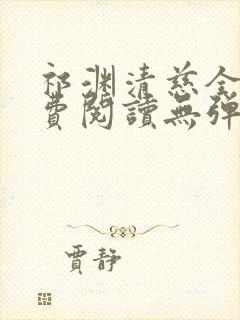 祁渊清慈全
費閱讀無彈
賈静